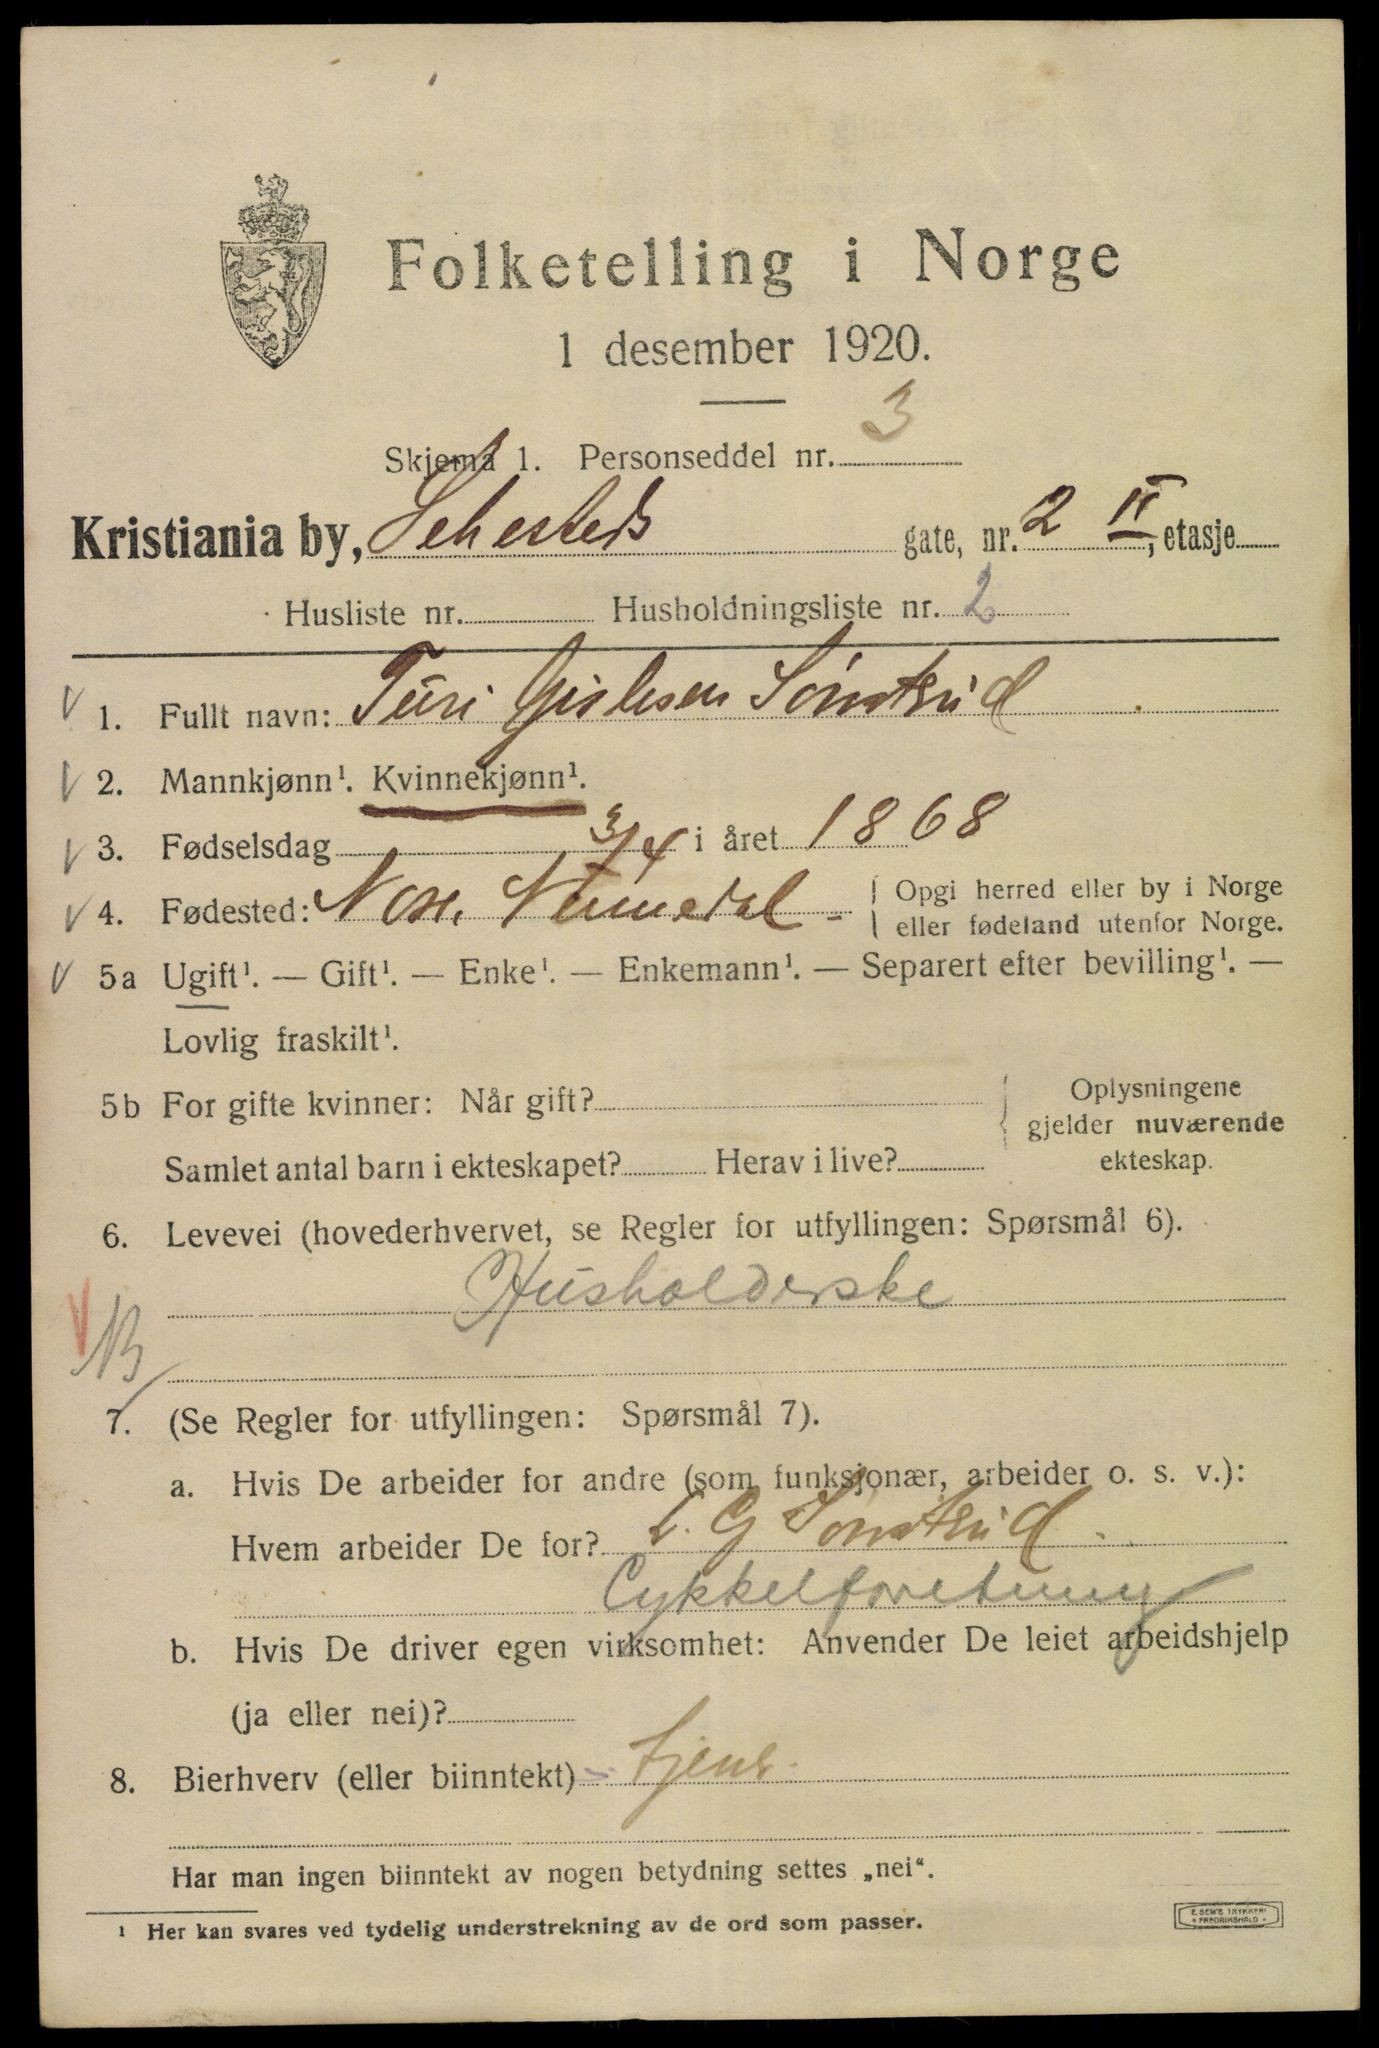 Folketelling i Norge
1 desember 1920.
Skjema 1. Personseddel nr. 3
Kristiania by, Sehesteds gate, nr. 2 II, etasje
Husliste nr. Husholdningsliste nr. 2
1. Fullt navn: Turi Gislesen Sønsterud
2. Mannkjønn¹. Kvinnekjønn¹.
3. Fødselsdag 3/4 i året 1868
4. Fødested: Nore, Numedal - { Opgi herred eller by i Norge
eller fødeland utenfor Norge.
5a Ugift¹. — Gift¹. — Enke¹. — Enkemann¹. — Separert efter bevilling¹. —
Lovlig fraskilt¹.
5b For gifte kvinner: Når gift? Oplysningene
gjelder nuværende
Samlet antal barn i ekteskapet? Herav i live? ekteskap.
6. Levevei (hovederhvervet, se Regler for utfyllingen: Spørsmål 6).
Husholderske
7. (Se Regler for utfyllingen: Spørsmål 7).
a. Hvis De arbeider for andre (som funksjonær, arbeider o. s. v.):
Hvem arbeider De for? L. G Sønsterud.
Cykkelforetning
b. Hvis De driver egen virksomhet: Anvender De leiet arbeidshjelp
(ja eller nei)?
8. Bierhverv (eller biinntekt)
Har man ingen biinntekt av nogen betydning settes „nei“.
¹ Her kan svares ved tydelig understrekning av de ord som passer.
E. SEM'S TRYKKERI
• FREDRIKSHALD •